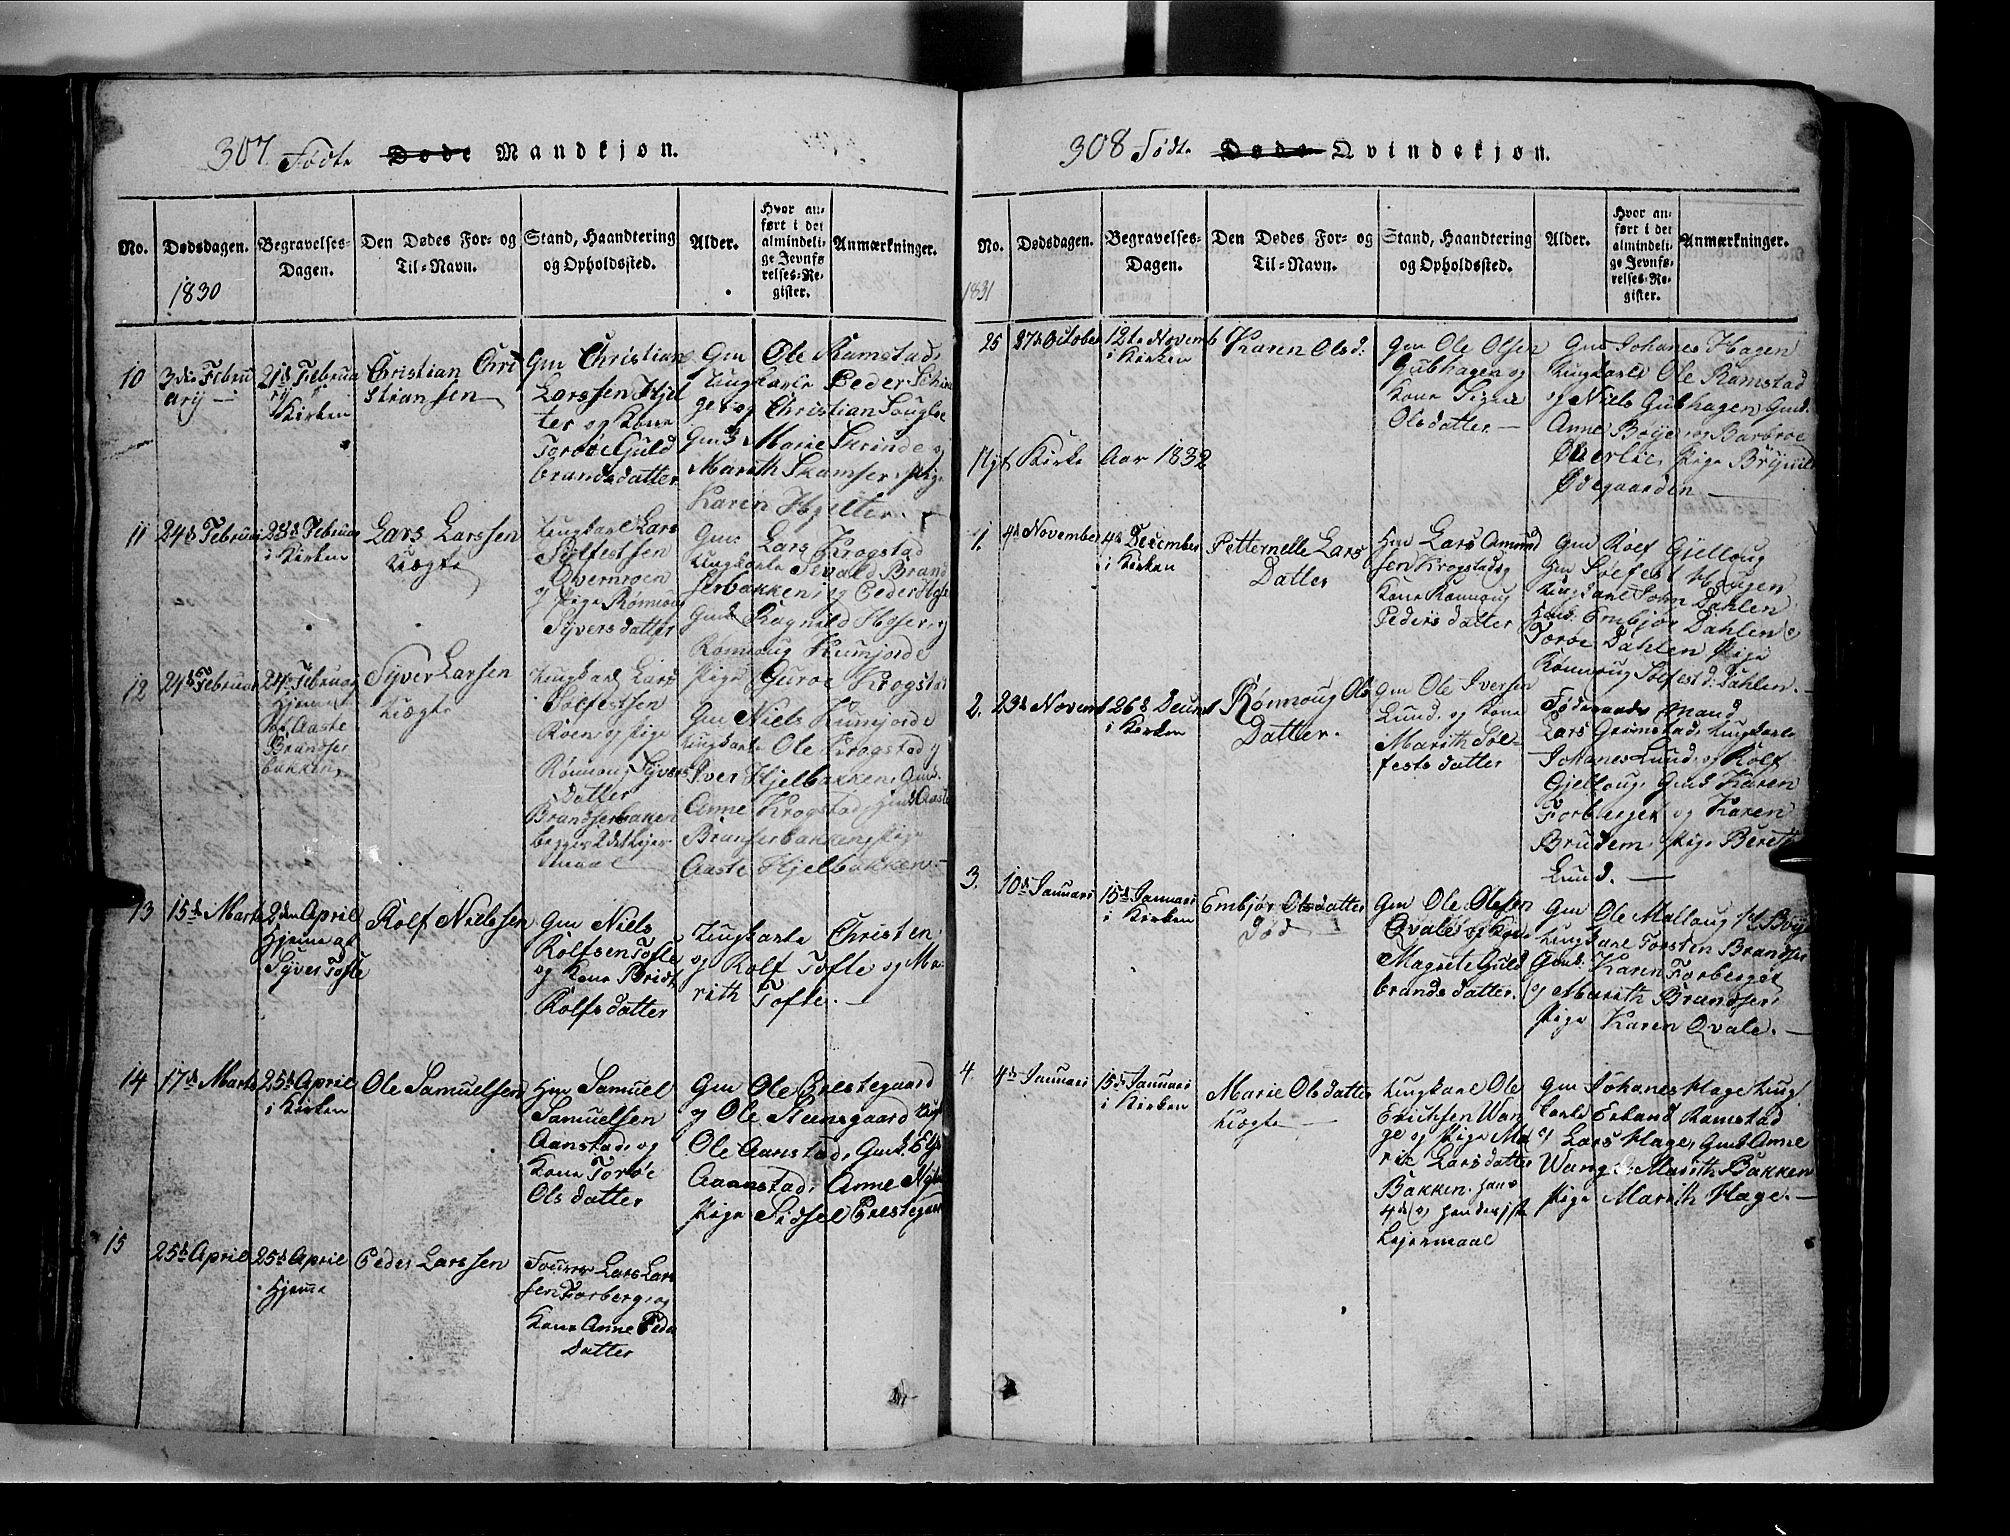 307. Födte Døde Mandkjøn.
No.
Dødsdagen.
Begravelses-
Dagen.
Den Dødes For- og
Til-Navn.
Stand, Haandtering
og Opholdssted.
Alder.
Hvor an-
ført i det
almindeli-
ge Jevnfø-
relses-Re-
gister.
Anmærkninger.
1830
10
3die Febru
ary
21de Februa
ry
Kirken
Christian Chri
Stiansen
Gm Christian
Larssen Hjel
ter og Kone
Torøe Guld
brandsdatter
Gm Ole Ramstad,
Ungkarle Peder
ger og Christian
Gmds Marie Skrinde og
Marith Skamser, Pige
Karen Hjelter.
11
24de Februar
28de Februar
i Kirken
Lars Larssen
Uægte
Ungkarl Lars
Solfestsen
Øvernroen
og Pige Rønnoug
Syversdatter
Gm Lars Krogstad
Ungkarle Sivald Brand
serbakken, og Peder
Gmds Ragnild
Rønnoug Kumjorde
12
24de Februar
24de Februar
Hjemme
af Aaste
Brandser
bakken
Syver Larsen
Uægte
Ungkarl Lars
Solfestsen
Roen, og Pige
Rønnoug Syvers
Datter
Brandserbakken
begges 2det Lejer
maal
Pige Guroe Krogstad
Gm Niels Kumjorde
Ungkarle Ole Krogstad og
Iver Hjelbakken, Gmds.
Anne Krogstad, Gmds Aaste
Branserbakken, Pige
Aaste Hjelbakken
13
15de Marts
2den April
Hjemme af
Syver Tofte
Rolf Nielssen
Gm Niels
Rolfsen Tofte
og Kone Bridt
Rolfsdatter
Ungkarle Christen
og Rolf Tofte og Ma-
rith Tofte.
14
17de Marts
25de April
i Kirken
Ole Samuelsen
Hm Samuel
Samuelsen
Aanstad, og
Kone Torøe
Olsdatter
Gm Ole Prestegaard
og Ole Steinsgaard
Ole Aanstad, Gmds.
Aanstad, Anne
Pige Sidsel Prestegaard
15
25de April
25de April
Hjeme
Peder Larssen
Lars Lars
sen Forberg, og
Kone Anne Peders
Datter
308 Födte Døde Qvindekjøn.
No.
Dødsdagen.
Begravelses-
Dagen.
Den Dødes For- og
Til-Navn.
Stand, Haandtering
og Opholdssted.
Alder.
Hvor an-
ført i det
almindeli-
ge Jevnfø-
relses-Re-
gister.
Anmærkninger.
1831
25
27de October
12te Novemb
i Kirken
Karen Olsd:
Gm Ole Olsen
Gubhagen og
Kone Signe
Olsdatter.
Gm Johanes Hagen
Ungkarle Ole Ramstad
og Niels Gubhagen, Gmds.
Anne Brye og Barbroe
Øverlie, Pige Brynild
Ødegaarden
Nyt Kirke Aar 1832
1.
4de November
4de December
i Kirken
Petternelle Lars
Datter
Hm Lars Amund
sen Krogstad og
Kone Rønnoug
Pedersdatter
Gm Rolf Gjelloug
Gm Solfest Haugen
Ungkarl John Dahlen
Embjør Dahlen og
Torøe Dahlen Pige
Rønnoug Solfestd. Dahlen.
2.
29de Novem
26de Decemb
i Kirken
Rønnoug Ols
Datter.
Gm Ole Iversen
Lund. og Kone
Marith Sol-
festsdatter
Föderaads mand
Lars Grimstad, Ungkarle
Johanes Lund, og Rolf
Gjelloug, Gmds Karen
Forberget og Karen
Bruden Pige Bereth
Lund.
3.
10de Januari
15de Januari
i Kirken
Embjør Olsdatter
Död
Gm Ole Olesen
Qvale og Kone
Magrete Guld
brandsdatter.
Gm Ole Malloug
Ungkarl Torsten Brandser
Gmds. Karen Forberget
og Marith Brandser,
Pige Karen Qvale.
4.
4de Januari
15de Januari
i Kirken
Marie Olsdatter
Uægte
Ungkarl Ole
Erichsen Wan
ge og Pige Ma
rit Larsdatter
Bakken. hans
4de og hendes 1ste
Lejermaal
Gm Johanes Hage Ung
karle Erland Ramstad
og Lars Hage, Gmds Anne
Wange Marith Bakken
Pige Marith Hage.